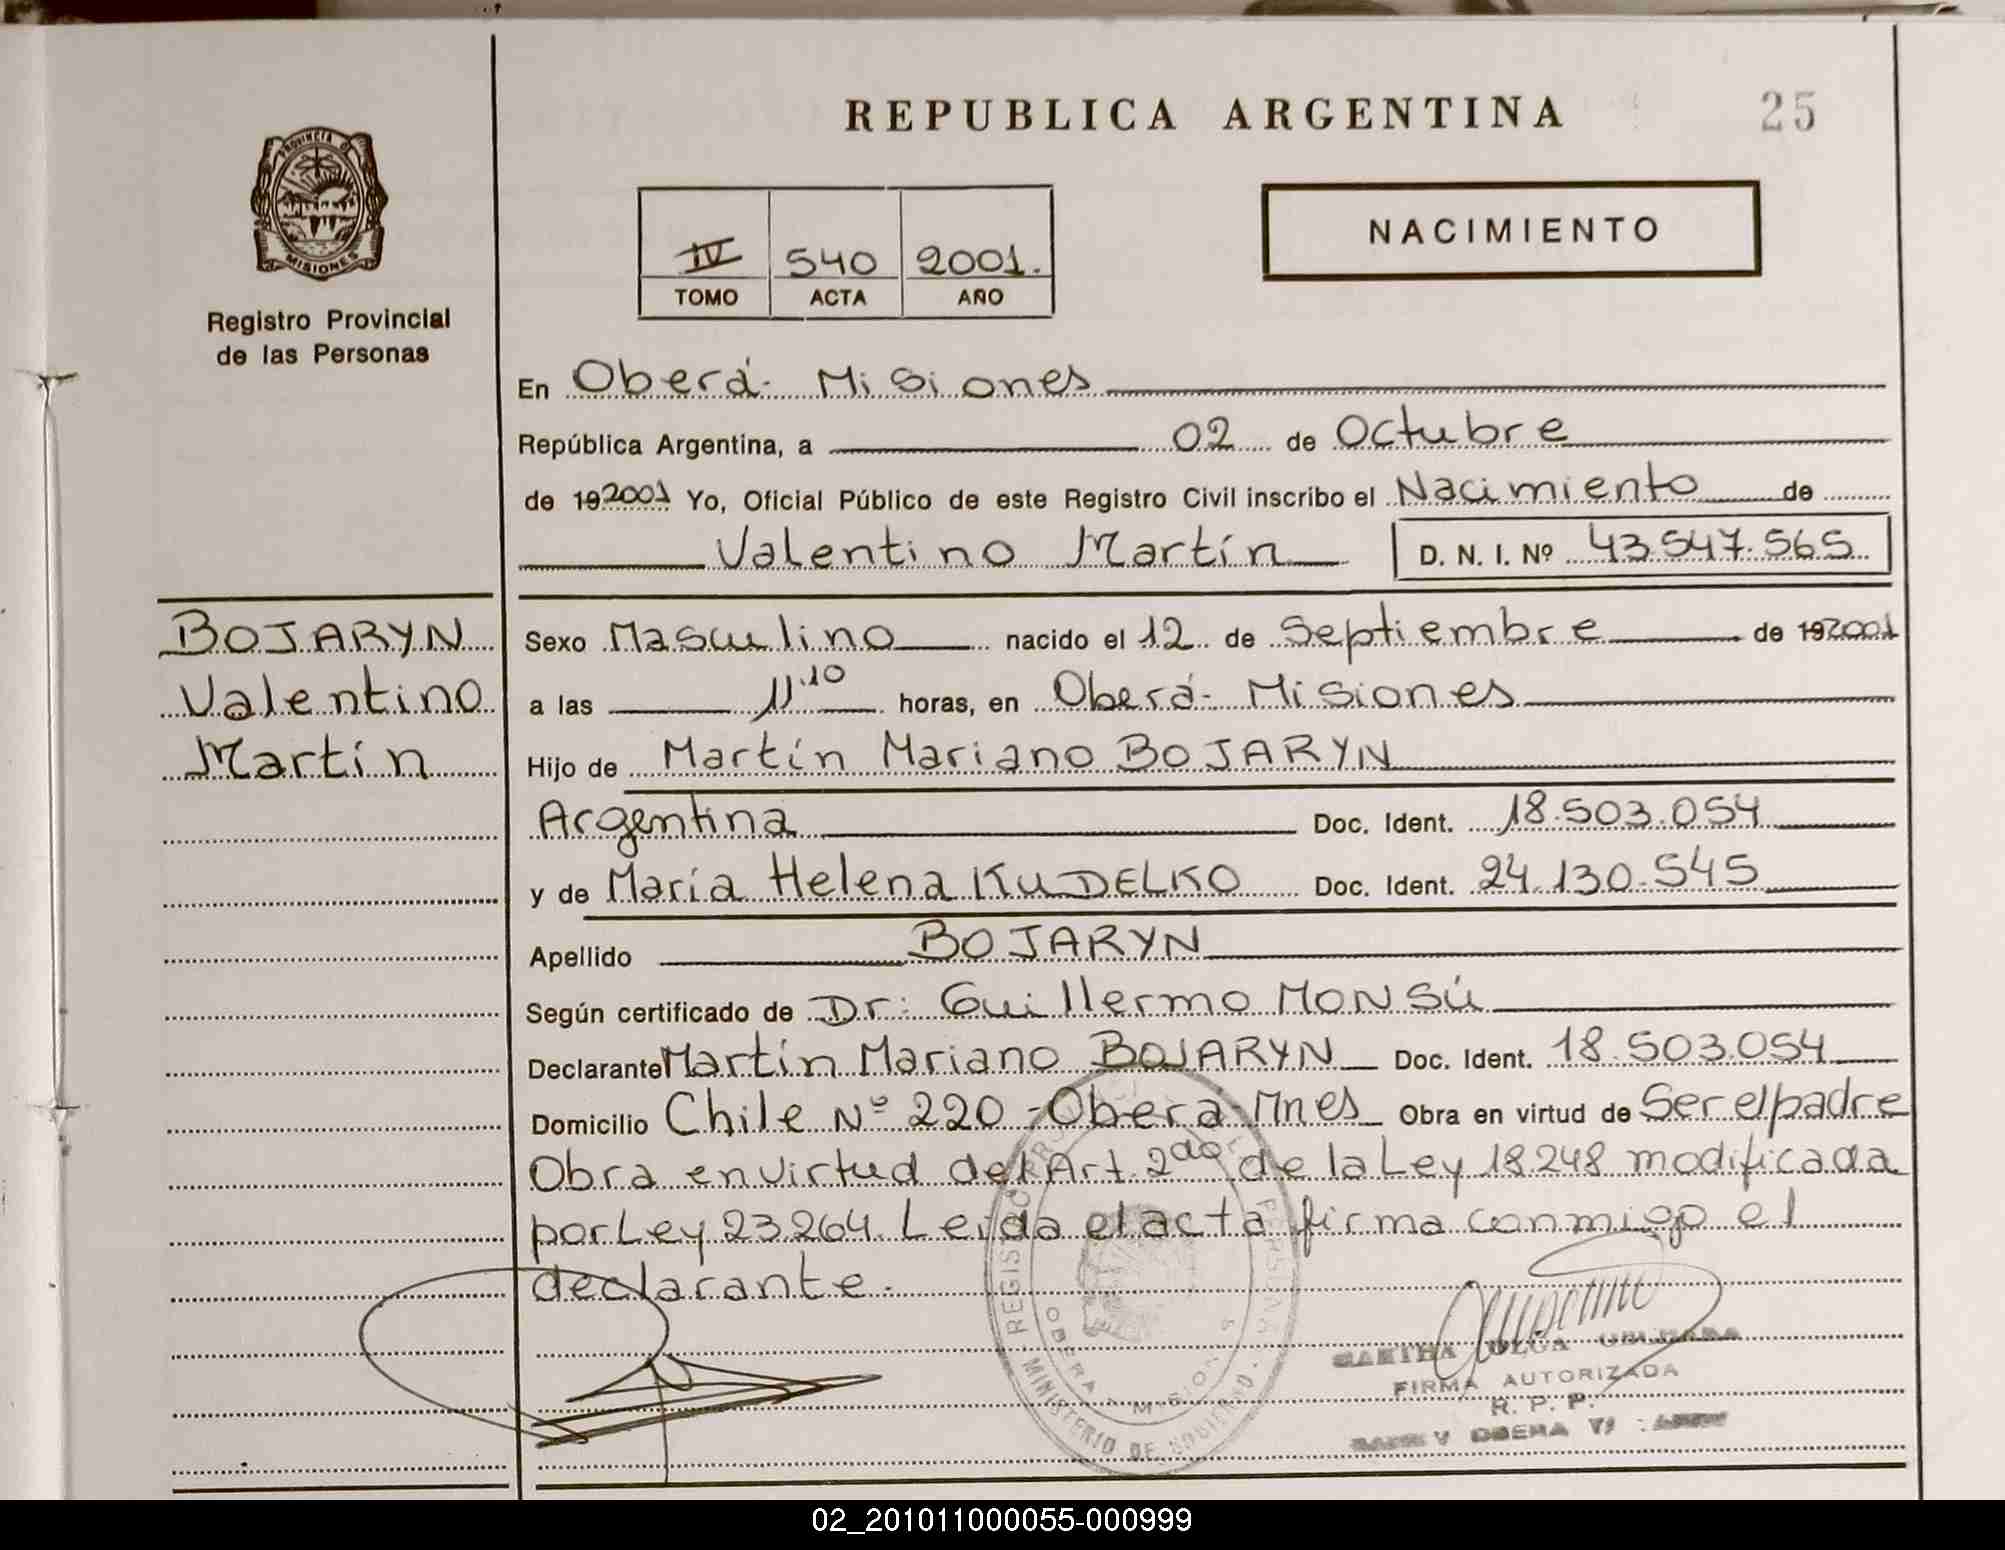 REPUBLICA ARGENTINA 25
PROVINCIA D MISIONES
Registro Provincial
de las Personas
IV 540 2001.
TOMO ACTA AÑO
NACIMIENTO
En Oberá- Misiones
República Argentina, a 02 de Octubre
de 192001 Yo, Oficial Público de este Registro Civil inscribo el Nacimiento de
Valentino Martín D. N. I. Nº 43.547.565
BOJARYN
Valentino
Martín
Sexo Masculino nacido el 12 de Septiembre de 192001
a las 11.10 horas, en Oberá- Misiones
Hijo de Martín Mariano BOJARYN
Argentina Doc. Ident. 18.503.054
y de María Helena KUDELKO Doc. Ident. 24.130.545
Apellido BOJARYN
Según certificado de Dr: Guillermo MONSÚ
Declarante Martín Mariano BOJARYN Doc. Ident. 18.503.054
Domicilio Chile Nº 220 - Oberá- Mnes Obra en virtud de Ser el padre
Obra en virtud del Art. 2do de la Ley 18.248 modificada
por Ley 23.264. Leída el acta firma conmigo el
declarante.
MINISTERIO DE GOBIERNO
OBERA MISIONES
OLGA
FIRMA AUTORIZADA
R. P. P.
OBERA
02_201011000055-000999